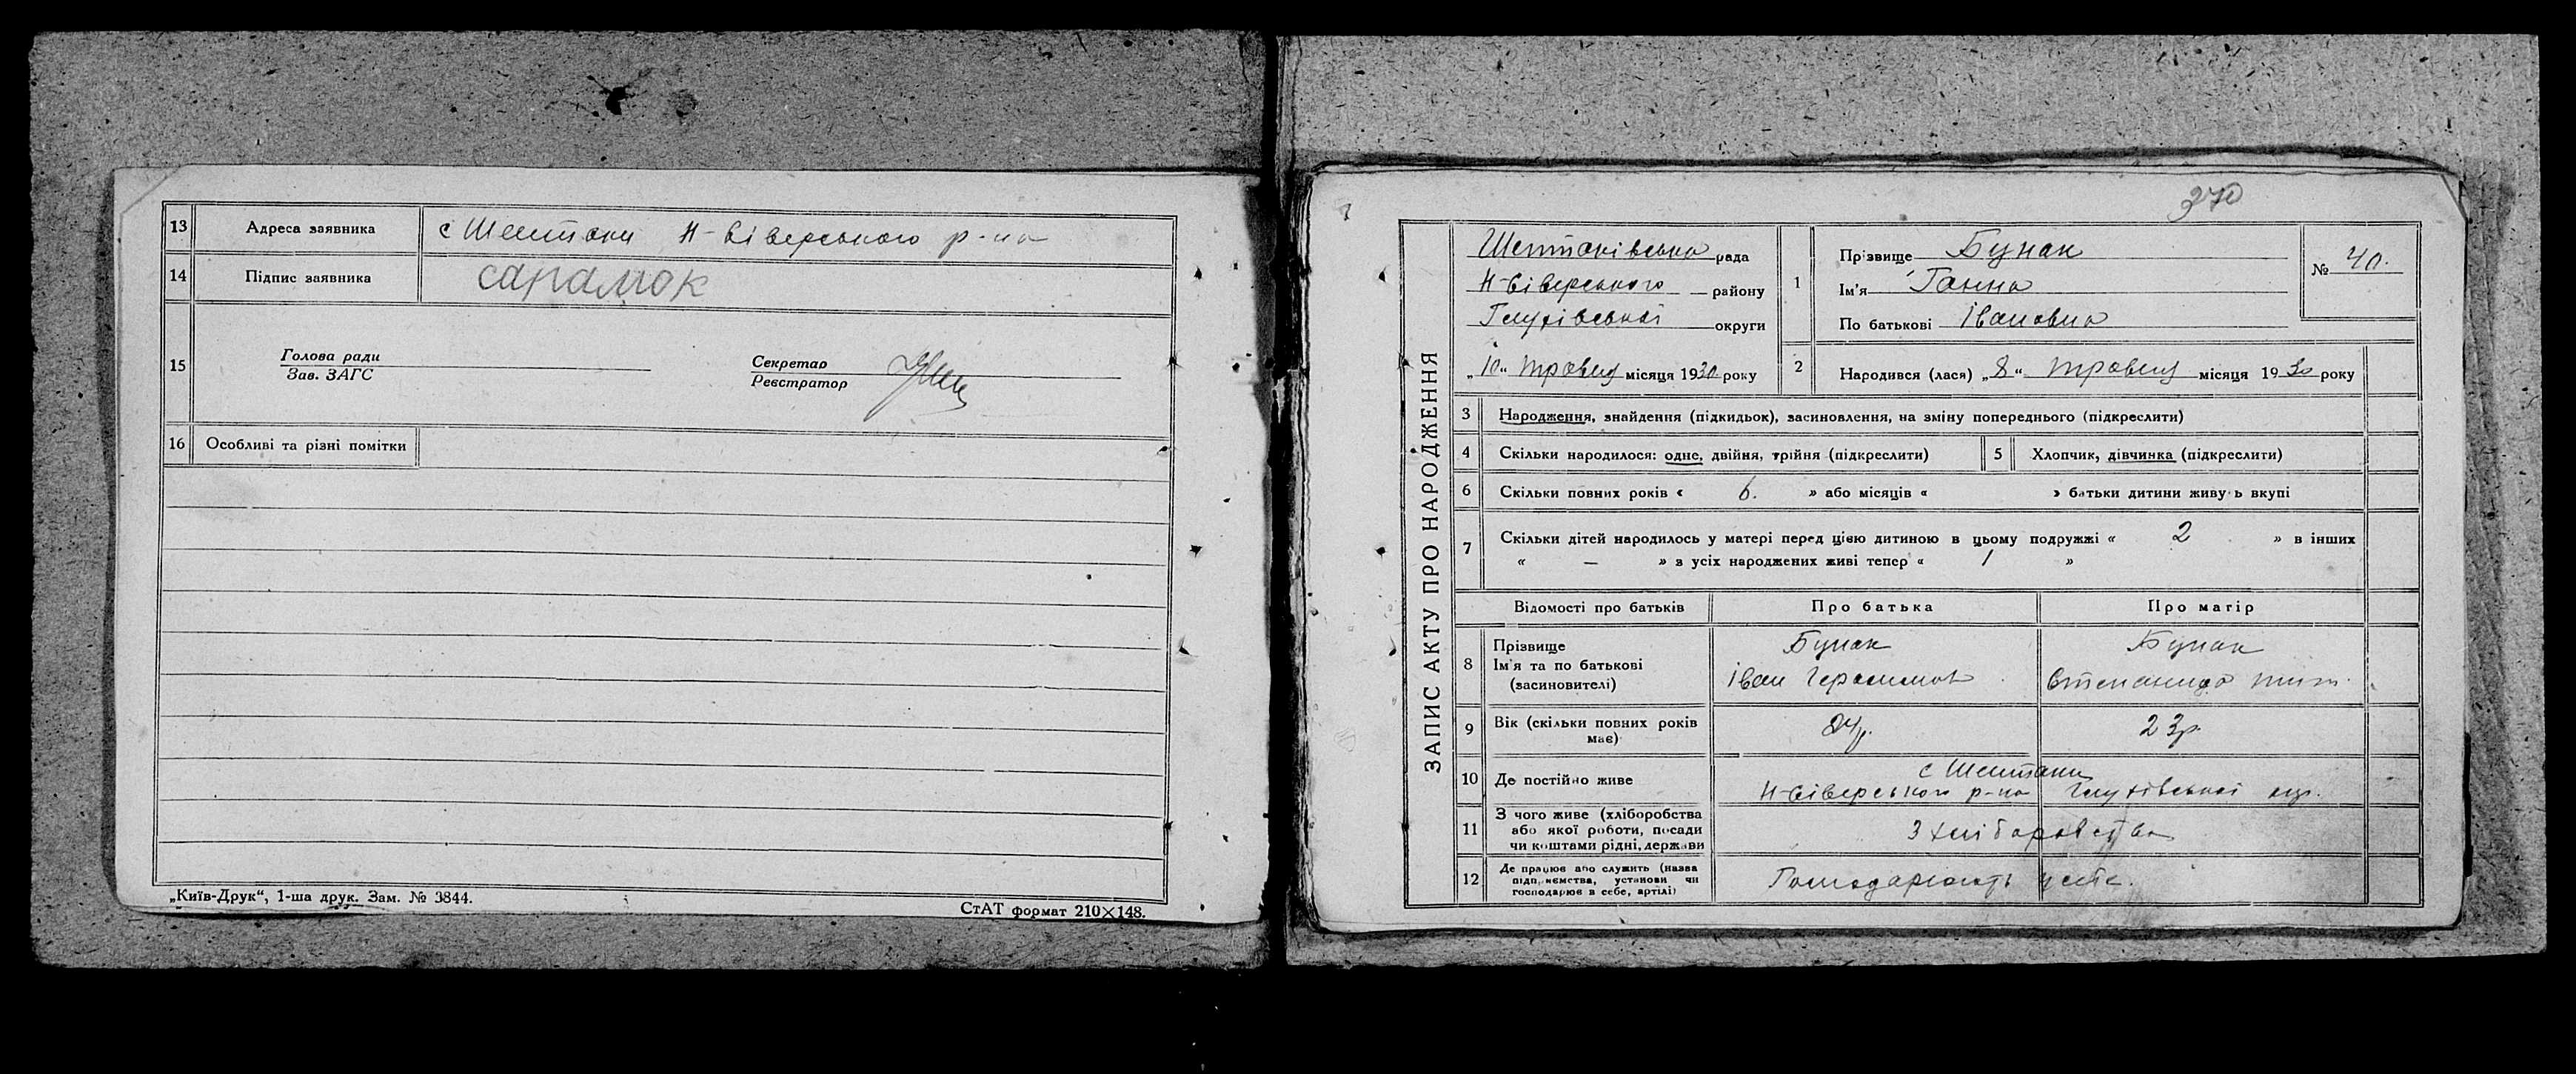 13 Адреса заявника с Шептаки Н-Сіверського р-на
14 Підпис заявника сарамок
15 Голова ради
Зав. ЗАГС
Секретар
Реєстратор
16 Особливі та різні помітки
„Київ-Друк“, 1-ша друк. Зам. № 3844.
СтАТ формат 210×148.
370
ЗАПИС АКТУ ПРО НАРОДЖЕННЯ
Шептаківська рада
Н-Сіверського району
Глухівської округи
„10“ травня місяця 1930 року
1 Прізвище Бунак
Ім'я Ганна
По батькові Івановна
№ 40.
2 Народився (лася) „8“ травня місяця 1930 року
3 Народження, знайдення (підкидьок), засиновлення, на зміну попереднього (підкреслити)
4 Скільки народилося: одне, двійня, трійня (підкреслити)
5 Хлопчик, дівчинка (підкреслити)
6 Скільки повних років « 6. » або місяців « » батьки дитини живуть вкупі
7 Скільки дітей народилось у матері перед цією дитиною в цьому подружжі « 2 » в інших
« — » з усіх народжених живі тепер « 1 »
Відомості про батьків Про батька Про матір
8 Прізвище Бунак Бунак
Ім'я та по батькові Іван Герасимов Степанида
(засновителі)
9 Вік (скільки повних років має) 24р. 23р.
10 Де постійно живе с Шептаки
Н-Сіверського р-на Глухівської окр.
11 З чого живе (хліборобства
або якої роботи, посади
чи коштами рідні, держави З хліборобства
12 Де працює або служить (назва
підприємства, установи чи
господарює в себе, артілі) Господарюють у себе.